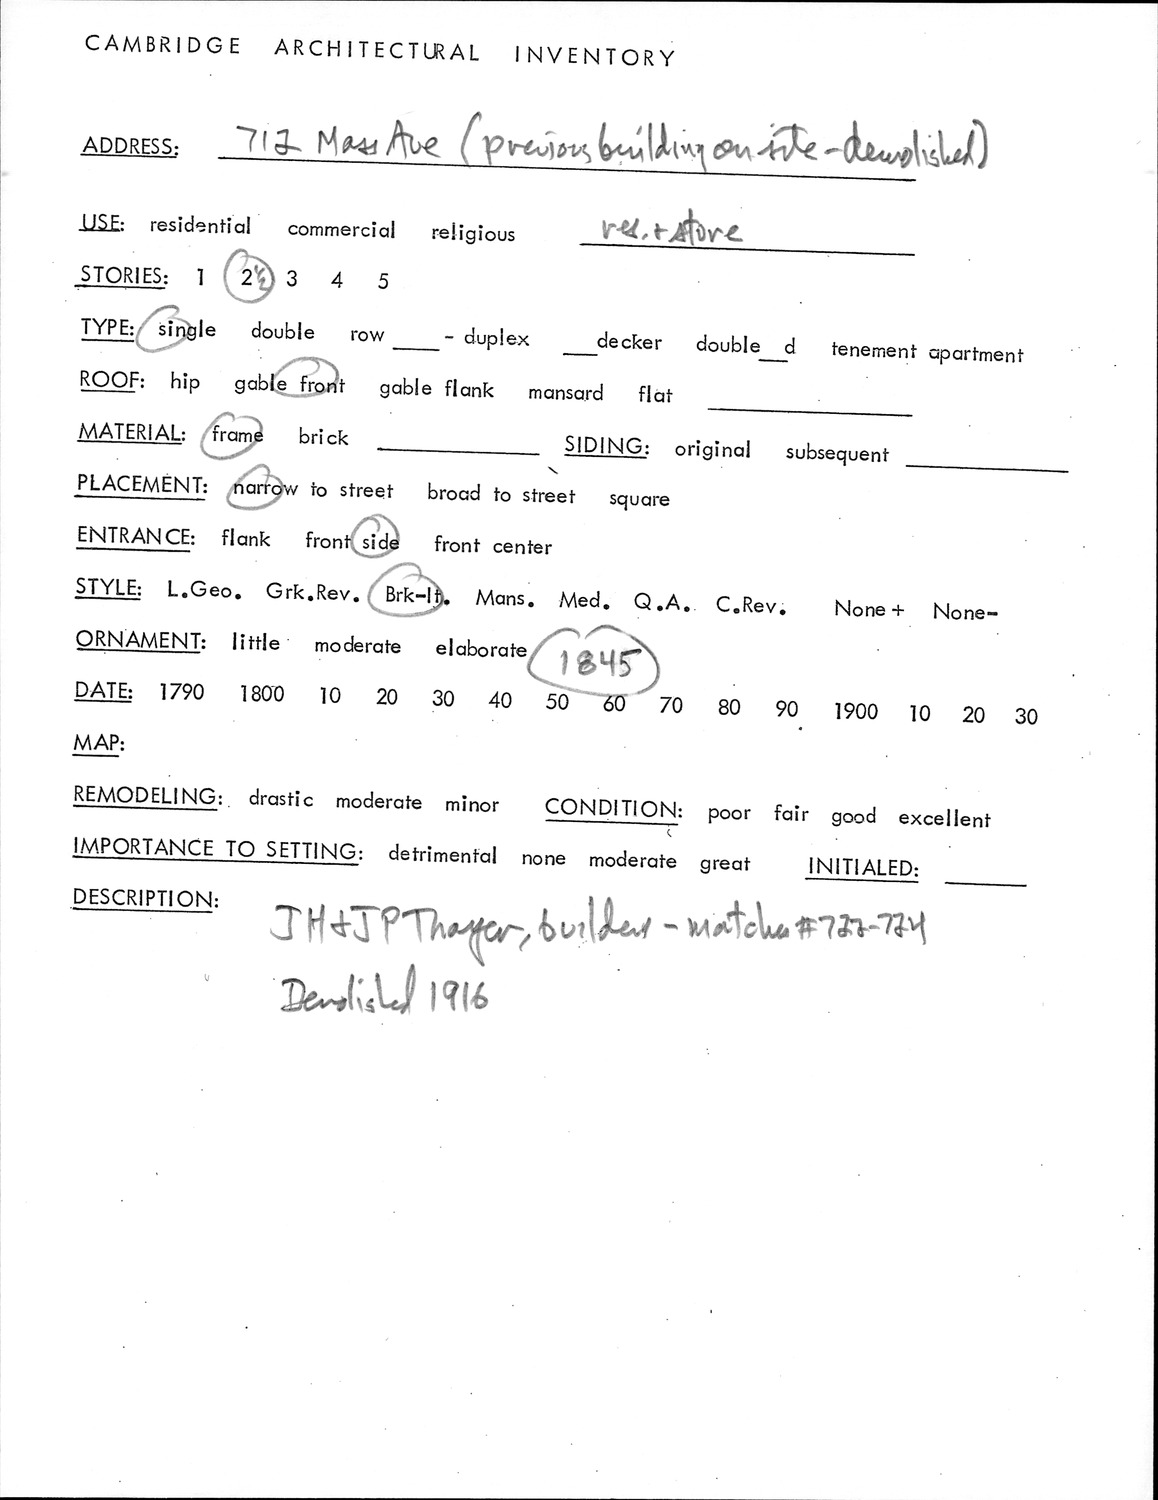 CAMBRIDGE ARCHITECTURAL INVENTORY
ADDRESS: 712 Mass Ave (previous building on site - demolished)
USE: residential commercial religious res. + store
STORIES: 1 2½ 3 4 5
TYPE: single double row ____ - duplex ___decker double__d tenement apartment
ROOF: hip gable front gable flank mansard flat ____
MATERIAL: frame brick ____ SIDING: original subsequent ____
PLACEMENT: narrow to street broad to street square
ENTRANCE: flank front side front center
STYLE: L.Geo. Grk.Rev. Brk-It. Mans. Med. Q.A. C.Rev. None + None-
ORNAMENT: little moderate elaborate 1845
DATE: 1790 1800 10 20 30 40 50 60 70 80 90 1900 10 20 30
MAP:
REMODELING: drastic moderate minor CONDITION: poor fair good excellent
IMPORTANCE TO SETTING: detrimental none moderate great INITIALED: ____
DESCRIPTION: JH & JP Thayer, builders - matches #722-724
Demolished 1916